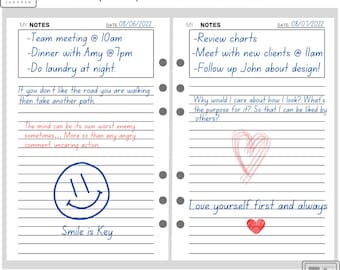 MY NOTES
DATE 08/06/2022
-Team meeting @ 10am
-Dinner with Amy @7pm
-Do laundry at night.
If you don't like the road you are walking
then take another path.
The mind can be its own worst enemy
sometimes... More so than any angry
comment uncaring action.
Smile is Key
MY NOTES
DATE 08/07/2022
-Review charts
-Meet with new clients @ 11am
-Follow up John about design!
Why would I care about how I look? What's
the purpose for it? So that I can be liked by
others?
Love yourself first and always